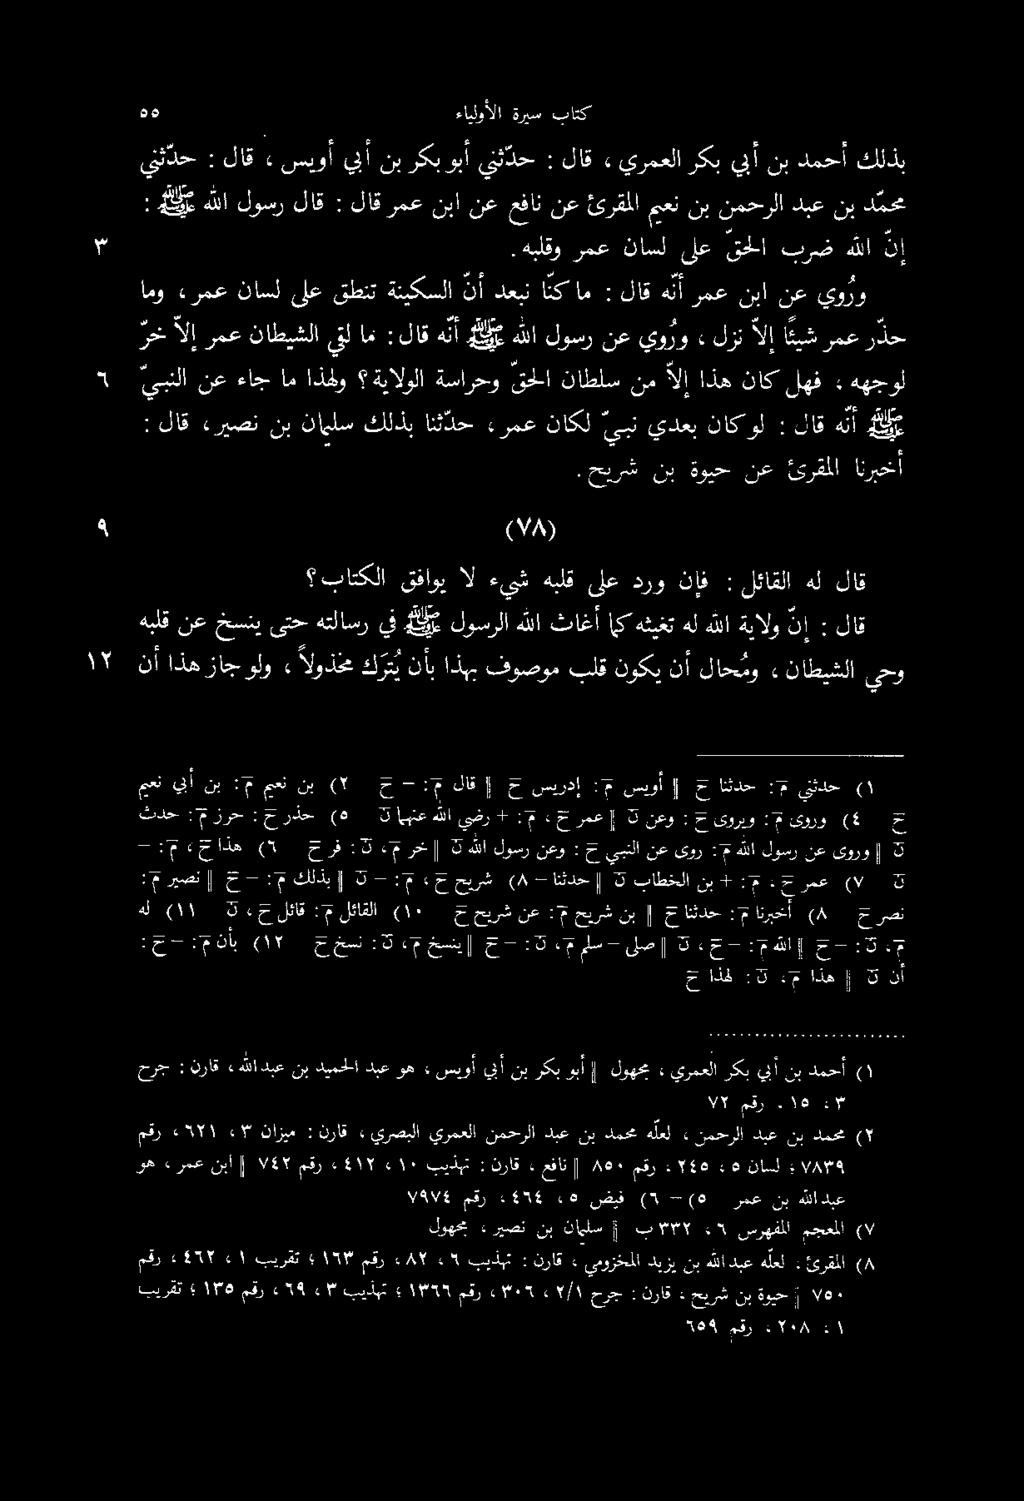 كتاب سيرة الأولياء ٥٥
بذلك أحمد بن أبي بكر العمري ، قال : حدّثني أبو بكر بن أبي أويس ، قال : حدّثني
محمّد بن عبد الرحمن بن نعيم المقرئ عن نافع عن ابن عمر قال : قال رسول الله ﷺ :
إنّ الله ضرب الحقّ على لسان عمر وقلبه . ٣
ورُوي عن ابن عمر أنّه قال : ما كنّا نبعد أنّ السكينة تنطق على لسان عمر ، وما
حذّر عمر شيئًا إلاّ نزل ، ورُوي عن رسول الله ﷺ أنّه قال : ما لقي الشيطان عمر إلاّ خرّ
لوجهه ، فهل كان هذا إلاّ من سلطان الحقّ وحراسة الولاية ؟ ولهذا ما جاء عن النبيّ ٦
ﷺ أنّه قال : لو كان بعدي نبيّ لكان عمر ، حدّثنا بذلك سليمان بن نصير ، قال :
أخبرنا المقرئ عن حيوة بن شريح .
(٧٨) ٩
قال له القائل : فإن ورد على قلبه شيء لا يوافق الكتاب ؟
قال : إنّ ولاية الله له تغيثه كما أغاث الله الرسول ﷺ في رسالته حتى ينسخ عن قلبه
وحي الشيطان ، ومُحال أن يكون قلب موصوف بهذا بأن يُترَك مخذولاً ، ولو جاز هذا أن ١٢
١) حدثني م : حدثنا ح ‖ أويس م : إدريس ح ‖ قال م : – ح ٢) بن نعيم م : بن أبي نعيم
ح ٤) وروى م : ويروى ح : وعن ن ‖ عمر ح ، م : + رضي الله عنهما ن ٥) حذر ح : حرز م : حدث
ن ‖ وروى عن رسول الله م : روى عن النبي ح : وعن رسول الله ن ‖ خر م ، ن : فر ح ٦) هذا ح ، م : –
ن ٧) عمر ح ، م : + بن الخطاب ن ‖ حدثنا – ٨) شريح ح ، م : – ن ‖ بذلك م : – ح ‖ نصير م :
نصر ح ٨) أخبرنا م : حدثنا ح ‖ بن شريح م : عن شريح ح ١٠) القائل م : قائل ح ، ن ١١) له
م ، ن : – ح ‖ الله م : – ح ، ن ‖ صلى – سلم م ، ن : – ح ‖ ينسخ م ، ن : نسخ ح ١٢) بأن م : – ح :
أن ن ‖ هذا م ، ن : لهذا ح
١) أحمد بن أبي بكر العمري ، مجهول ‖ أبو بكر بن أبي أويس ، هو عبد الحميد بن عبدالله ، قارن : جرح
٣ ، ١٥ ، رقم ٧٢
٢) محمد بن عبد الرحمن ، لعلّه محمد بن عبد الرحمن العمري البصري ، قارن : ميزان ٣ ، ٦٢١ ، رقم
٧٨٣٩ ؛ لسان ٥ ، ٢٤٥ ، رقم ٨٥٠ ‖ نافع ، قارن : تهذيب ١٠ ، ٤١٢ ، رقم ٧٤٢ ‖ ابن عمر ، وهو
عبدالله بن عمر ٥) – ٦) فيض ٥ ، ٤٦٤ ، رقم ٧٩٧٤
٧) المعجم المفهرس ٦ ، ٣٣٢ ب ‖ سليمان بن نصير ، مجهول
٨) المقرئ ، لعلّه عبدالله بن يزيد المخزومي ، قارن : تهذيب ٦ ، ٨٢ ، رقم ١٦٣ ؛ تقريب ١ ، ٤٦٢ ، رقم
٧٥٠ ‖ حيوة بن شريح ، قارن : جرح ٢/١ ، ٣٠٦ ، رقم ١٣٦٦ ؛ تهذيب ٣ ، ٦٩ ، رقم ١٣٥ ؛ تقريب
١ ، ٢٠٨ ، رقم ٦٥٩